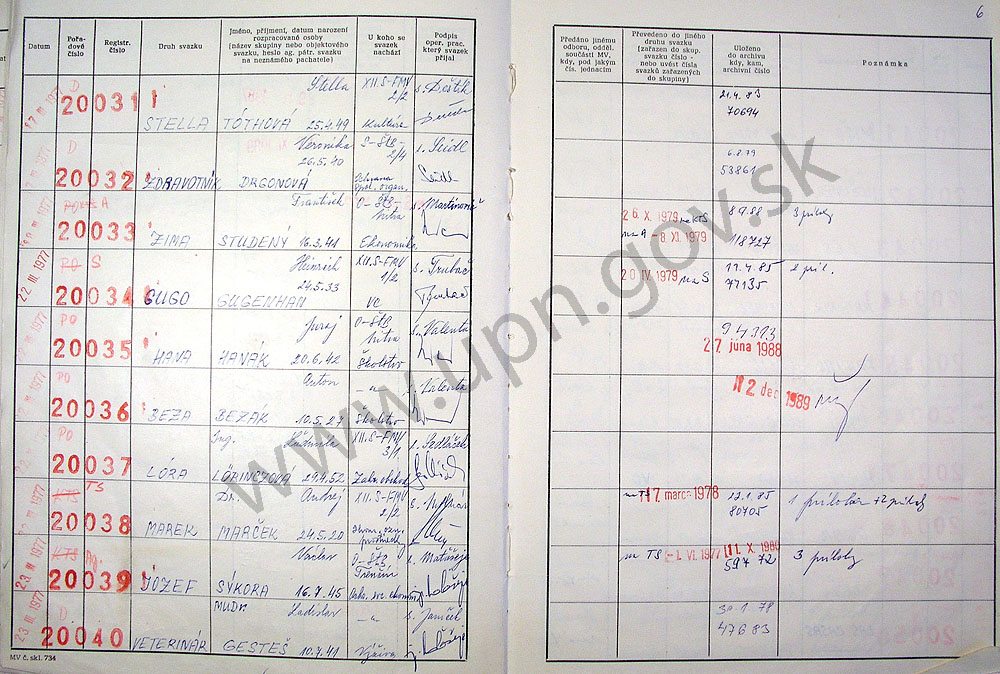 6
Datum
Pořadové číslo
Registr. číslo
Druh svazku
Jméno, příjmení, datum narození rozpracované osoby (název skupiny nebo objektového svazku, heslo ag. pátr. svazku na neznámého pachatele)
U koho se svazek nachází
Podpis oper. prac. který svazek přijal
Předáno jinému odboru, odděl. součásti MV, kdy, pod jakým čís. jednacím
Převedeno do jiného druhu svazku (zařazen do skup. svazku číslo - nebo uvést čísla svazků zařazených do skupiny)
Uloženo do archivu kdy, kam, archivní číslo
Poznámka
D
20031
STELLA
Stella
TÓTHOVÁ 25.4.49
XII.S-FMV
2/2
Kultúra
21.4.83
70694
D
20032
ZDRAVOTNÍK
Veronika
26.5.40
DRGONOVÁ
S-ŠtB-
2/4
s. Seidl
Seidl
6.8.79
53861
A
20033
ZIMA
František
STUDENÝ 16.3.41
O-ŠtB-
Nitra
Ekonomika
s. Martinovič
26. X. 1979 na KTS
na A - 8. XI. 1979
118727
3 prílohy
22 III 1977
PO S
20034
GUGO
Heinrich
24.5.33
GUGENHAN
XII.S-FMV
1/2
VC
s. Trubač
Trubač
20 IV 1979 na S
77135
2 príl.
PO
20035
HAVA
Juraj
HANÁK 20.6.42
O-ŠtB
Nitra
Školstvo
s. Valenta
94313
27. júna 1988
PO
20036
BEZA
Anton
BEZÁK 10.5.27
-"-
Školstvo
s. Valenta
12 dec 1989
PO
20037
LÓRA
Ing. Ľudmila
LÖRINCZOVÁ 29.4.52
XII.S-FMV
3/1
s. Sedláček
KTS TS
20038
MAREK
Dr. Andrej
MARČEK 24.5.20
XII.S-FMV
2/2
na TS 17. marca 1978
80705
1 príloha +2 prílohy
23 III 1977
KTS Ag.
20039
JOZEF
Václav
SÝKORA 16.7.45
O-ŠtB
Trenčín
s. Matušeje
na TS - 1. VI. 1977
59772
3 prílohy
23 III 1977
D
20040
VETERINÁR
MUDr. Ladislav
GESTEŠ 10.7.41
-"-
Výživa
s. Janíček
30.1.78
47683
MV č. skl. 734
www.upn.gov.sk